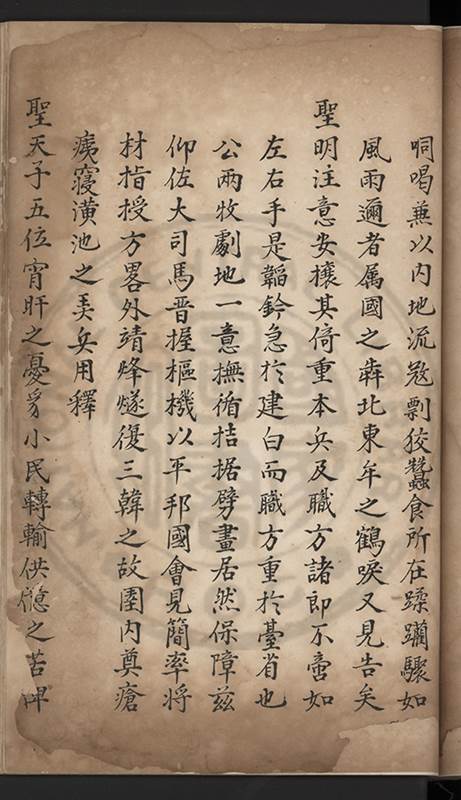 哃喝兼以内地流寇剽狡蠶食所在蹂躪驟如
風雨邇者属國之犇北東牟之鶴唳又見告矣
聖明注意安攘其倚重本兵及職方諸郎不啻如
左右手是韜鈐急於建白而職方重於臺省也
公兩牧劇地一意撫循拮据劈畫居然保障兹
仰佐大司馬晋握樞機以平邦國會見簡率將
材指授方畧外靖烽燧復三韓之故圉内奠瘡
痍寢潢池之弄兵用釋
聖天子五位宵旰之憂身小民轉輸供億之苦